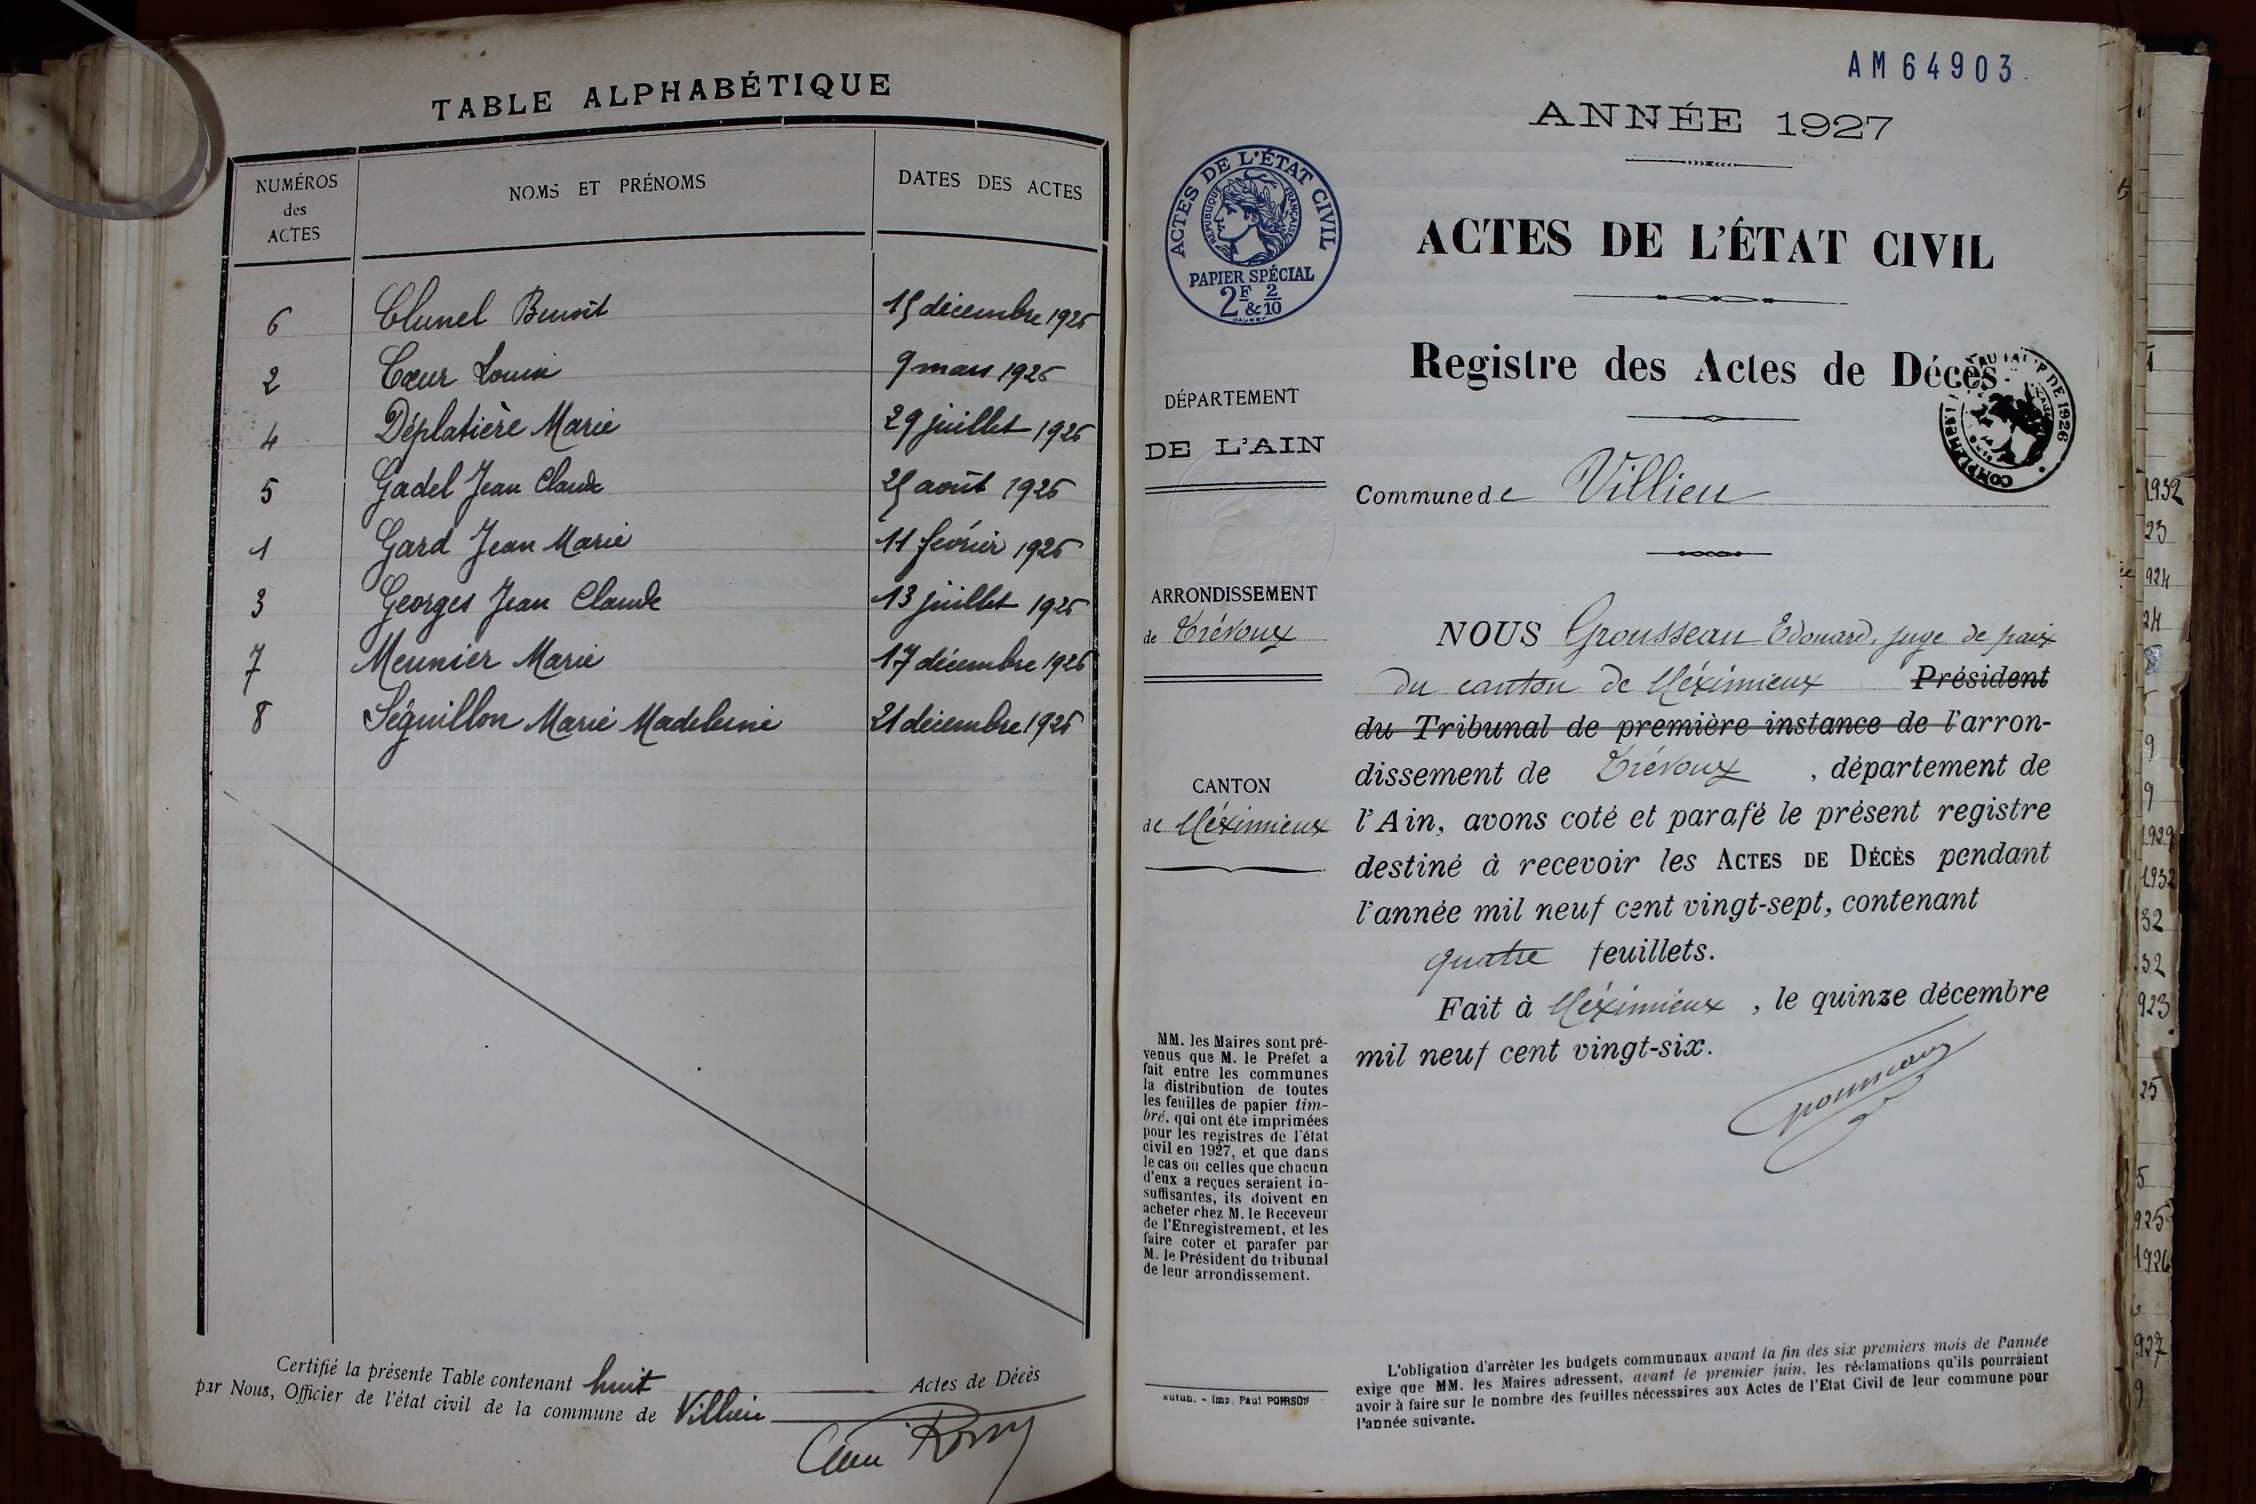 TABLE ALPHABÉTIQUE
NUMÉROS
des
ACTES
NOMS ET PRÉNOMS
DATES DES ACTES
6 Clunel Benoît 15 décembre 1926
2 Cœur Louis 9 mars 1926
4 Déplatière Marie 29 juillet 1926
5 Gadel Jean Claude 25 août 1926
1 Gard Jean Marie 11 février 1926
3 Georges Jean Claude 13 juillet 1926
7 Meunier Marie 17 décembre 1926
8 Séguillon Marie Madeleine 21 décembre 1926
Certifié la présente Table contenant huit Actes de Décès
par Nous, Officier de l'état civil de la commune de Villieu
AM64903
ANNÉE 1927
ACTES DE L'ÉTAT CIVIL
RÉPUBLIQUE FRANÇAISE
PAPIER SPÉCIAL
2F & 2/10
ACTES DE L'ÉTAT CIVIL
Registre des Actes de Décès
DE 1926
DÉPARTEMENT
DE L'AIN
Commune de Villieu
ARRONDISSEMENT
de Trévoux
CANTON
de Méximieux
NOUS Grousseau Edouard, juge de paix
du canton de Méximieux Président
du Tribunal de première instance de l'arron-
dissement de Trévoux, département de
l'Ain, avons coté et parafé le présent registre
destiné à recevoir les ACTES DE DÉCÈS pendant
l'année mil neuf cent vingt-sept, contenant
quatre feuillets.
Fait à Méximieux, le quinze décembre
mil neuf cent vingt-six.
MM. les Maires sont pré-
venus que M. le Préfet a
fait entre les communes
la distribution de toutes
les feuilles de papier tim-
bré, qui ont été imprimées
pour les registres de l'état
civil en 1927, et que dans
le cas où celles que chacun
d'eux a reçues seraient in-
suffisantes, ils doivent en
acheter chez M. le Receveur
de l'Enregistrement, et les
faire coter et parafer par
M. le Président du tribunal
de leur arrondissement.
Autun. - Imp. Paul POIRSON
L'obligation d'arrêter les budgets communaux avant la fin des six premiers mois de l'année
exige que MM. les Maires adressent, avant le premier juin, les réclamations qu'ils pourraient
avoir à faire sur le nombre des feuilles nécessaires aux Actes de l'Etat Civil de leur commune pour
l'année suivante.
1932
23
924
24
9
9
1929
1932
32
32
923
25
5
925
1926
927
9